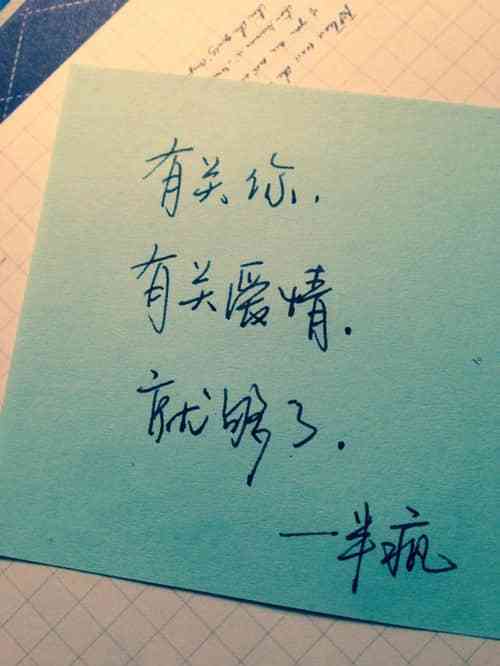 有关你.
有关爱情.
就够了.
一半疯